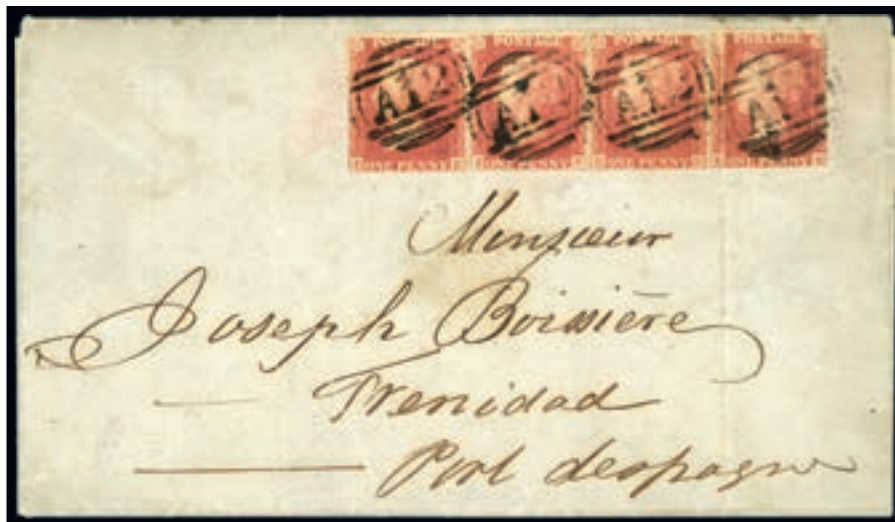 POSTAGE POSTAGE POSTAGE POSTAGE
A12 A12 A12 A1
ONE PENNY ONE PENNY ONE PENNY ONE PENNY
Monsieur
Joseph Boissière
Trenidad
Port despagne